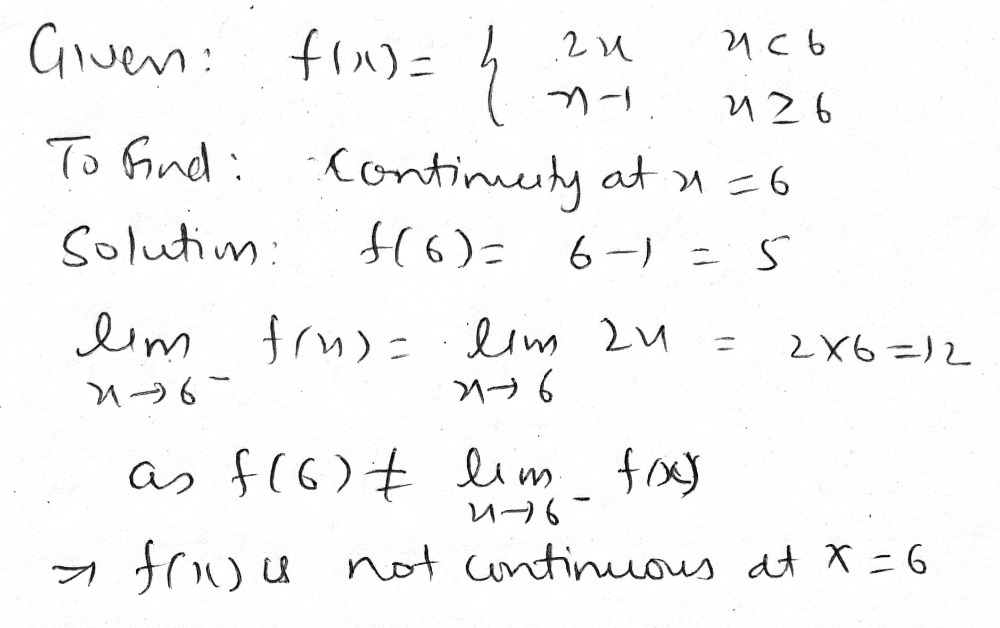 Given: f(x) = { 2x x < 6
x-1 x ≥ 6
To find: Continuity at x = 6
Solution: f(6) = 6-1 = 5
lim f(x) = lim 2x = 2×6=12
x→6⁻ x→6
as f(6) ≠ lim f(x)
x→6⁻
→ f(x) is not continuous at x = 6